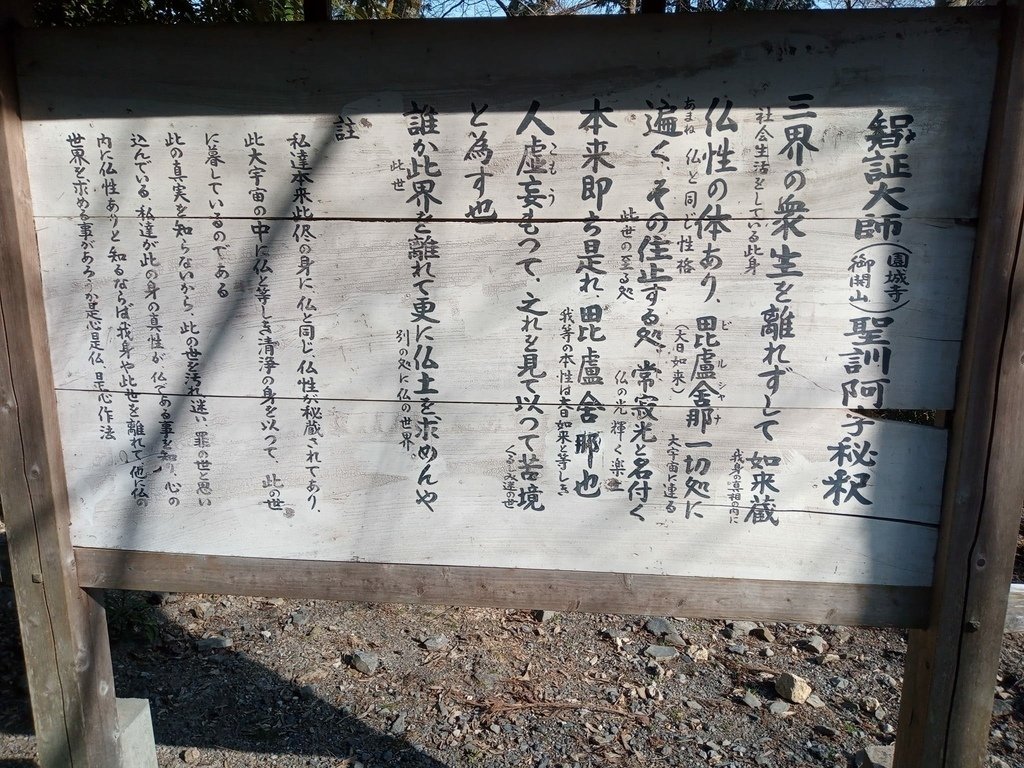 智証大師(園城寺御開山)聖訓阿字秘釈
三界の衆生を離れずして如来蔵
社会生活をしている此身 我身の真相の内に
仏性の体あり、毘盧舎那一切処に
ビルシャナ
仏と同じ性格 (大日如来) 大宇宙に達る
あまね
遍く、その住止する処、常寂光と名付く
此世の至る処 仏の光輝く楽土
本来即ち是れ毘盧舎那也
我等の本性は大日如来と等しき
人虚妄もつて、之れを見て以つて苦境
こもう
くるしみ迷の世
と為す也
誰か此界を離れて更に仏土を求めんや
此世 別の処に仏の世界
註
私達本来此侭の身に仏と同じ仏性が秘蔵されてあり、
此大宇宙の中に仏と等しき清浄の身を以つて、此の世
に暮しているのである
此の真実を知らないから、此の世を汚れ迷い罪の世と思い
込んでいる、私達が此の身の真性が仏である事を知り、心の
内に仏性ありと知るならば我身や此世を離れて他に仏の
世界を求める事があろうか是心是仏 是心作法